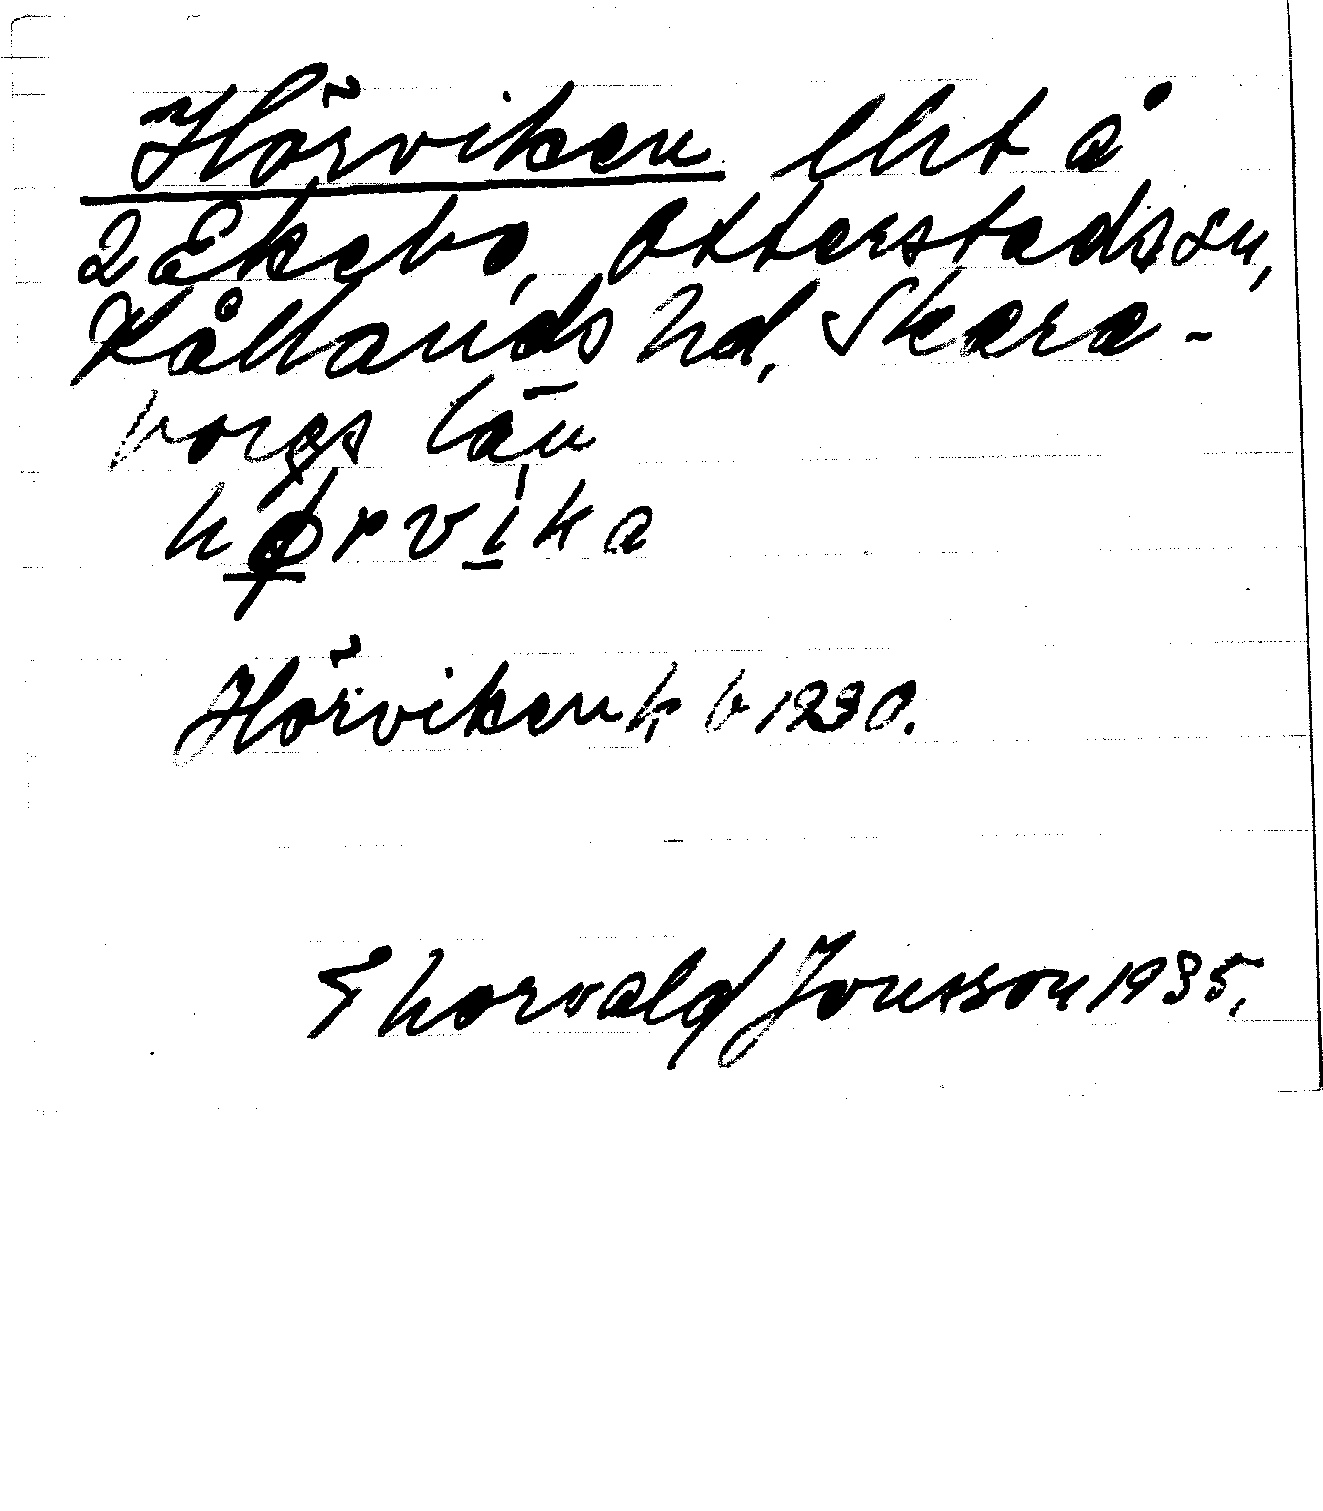 Hörviken lht å
2 Ekebo, Otterstads sn,
Kållands hd, Skara-
borgs län
hø̱rvi̱ka
Hörviken k b 1230.
Thorvald Jonsson 1935.